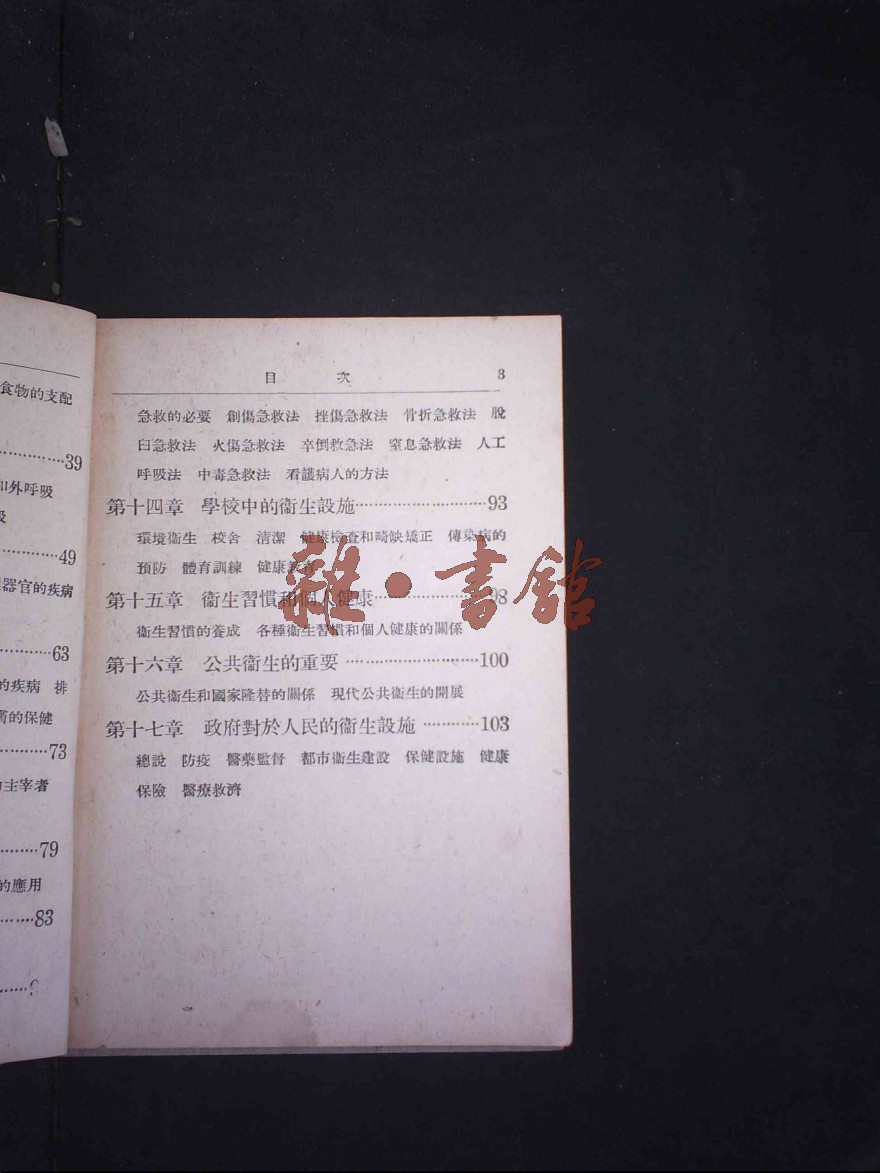 食物的支配
39
和外呼吸
吸
49
器官的疾病
63
的疾病 排
的保健
73
主宰者
79
的應用
83
目 次 3
急救的必要 創傷急救法 挫傷急救法 骨折急救法 脫
臼急救法 火傷急救法 卒倒救急法 窒息急救法 人工
呼吸法 中毒急救法 看護病人的方法
第十四章 學校中的衞生設施……………………93
環境衞生 校舍 清潔 健康檢查和畸缺矯正 傳染病的
預防 體育訓練 健康教育
第十五章 衞生習慣和個人健康……………………98
衞生習慣的養成 各種衞生習慣和個人健康的關係
第十六章 公共衞生的重要……………………100
公共衞生和國家隆替的關係 現代公共衞生的開展
第十七章 政府對於人民的衞生設施…………103
總說 防疫 醫藥監督 都市衞生建設 保健設施 健康
保險 醫療救濟
雜·書館